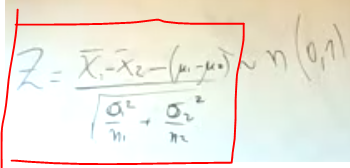 Z = (X̄₁ - X̄₂ - (μ₁ - μ₂)) / √(σ₁²/n₁ + σ₂²/n₂) ~ n(0,1)